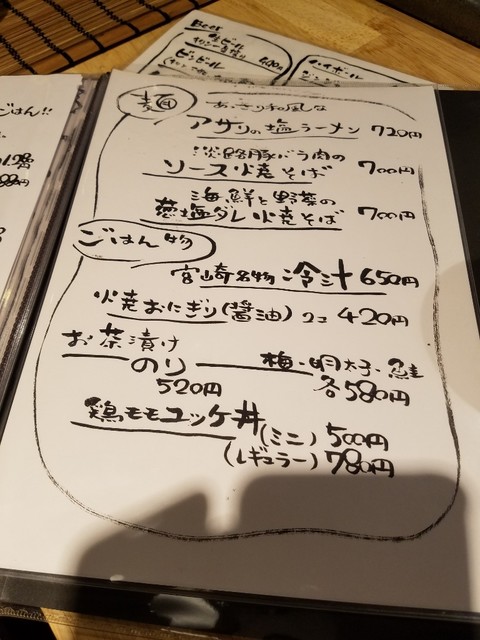 Beer
生ビール
ビンビール
ハイボール
ごはん!!
麺
あっさり和風な
アサリの塩ラーメン 720円
淡路豚バラ肉の
ソース火焼そば 700円
海鮮と野菜の
葱塩ダレ火焼そば 700円
ごはん物
宮崎名物 冷汁 650円
火焼おにぎり(醤油) 2コ 420円
お茶漬け
のり 梅・明太子・鮭
520円 各580円
鶏モモユッケ丼
(ミニ) 500円
(レギュラー) 780円